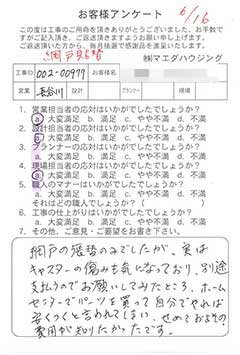 お客様アンケート
6/16
この工事のご用命を頂きありがとうございました。お手数で
すがご記入頂き、ご返送頂けますようお願い申し上げます。
ご返送頂いた方から、毎月抽選で感謝品を進呈いたします。
網戸張替
㈱マエダハウジング
工事ID 002-00977 お客様名
営業 長谷川 設計 プランナー 現場
1. 営業担当者の応対はいかがでしたでしょうか?
a. 大変満足 b. 満足 c. やや不満 d. 不満
2. 設計担当者の応対はいかがでしたでしょうか?
a. 大変満足 b. 満足 c. やや不満 d. 不満
3. プランナーの応対はいかがでしたでしょうか?
a. 大変満足 b. 満足 c. やや不満 d. 不満
4. 現場担当者の応対はいかがでしたでしょうか?
a. 大変満足 b. 満足 c. やや不満 d. 不満
5. 職人のマナーはいかがでしたでしょうか?
a. 大変満足 b. 満足 c. やや不満 d. 不満
それはどの職人でしょうか?( )
6. 工事の仕上がりはいかがでしたでしょうか?
a. 大変満足 b. 満足 c. やや不満 d. 不満
7. その他、ご意見・ご要望をお書き下さい。
網戸の張替のみでしたが、実は
キャスターの傷みも気になっており、別途
支払うのでお願いしてみたところ、ホーム
センターでパーツを買って自分でやれば
安くつくと言われてしまい、せめておおよその
費用が知りたかったです。